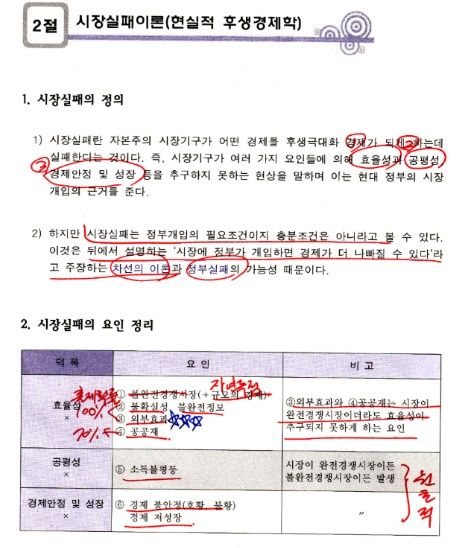 2절 시장실패이론(현실적 후생경제학)
1. 시장실패의 정의
1) 시장실패란 자본주의 시장기구가 어떤 경제를 후생극대화
하는데
실패한다는 것이다. 즉, 시장기구가 여러 가지 요인들에 의해 효율성과 공평성,
경제안정 및 성장 등을 추구하지 못하는 현상을 말하며 이는 현대 정부의 시장
개입의 근거를 준다.
2) 하지만 시장실패는 정부개입의 필요조건이지 충분조건은 아니라고 볼 수 있다.
이것은 뒤에서 설명하는 '시장에 정부가 개입하면 경제가 더 나빠질 수 있다'라
고 주장하는 차선의 이론과 정부실패의 가능성 때문이다.
2. 시장실패의 요인 정리
덕목 요인 비고
자연독점
① 불완전경쟁시장(+규모의 경제)
효율성 ② 불확실성 불완전정보
× ③ 외부효과
④ 공공재
100%
70%
③외부효과와 ④공공재는 시장이
완전경쟁시장이더라도 효율성이
추구되지 못하게 하는 요인
공평성
×
⑤ 소득불평등
시장이 완전경쟁시장이든
불완전경쟁시장이든 발생
경제안정 및 성장
×
⑥ 경제 불안정(호황, 불황)
경제 저성장
〃